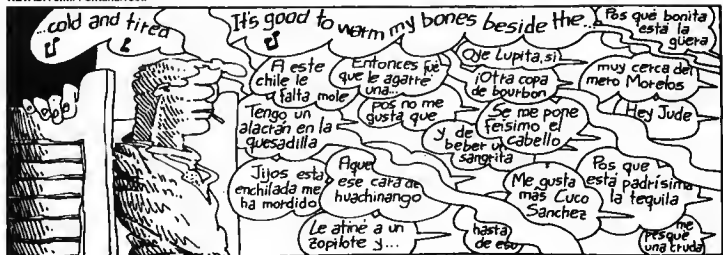 ...cold and tired
It's good to warm my bones beside the...
Pos qué bonita
está la
güera
A este
chile le
falta mole
Entonces fue
que le agarré
una...
Oye Lupita, si
¡Otra copa
de bourbon
muy cerca del
mero Morelos
Hey Jude
Tengo un
alacrán en la
quesadilla
pos no me
gusta que
Se me pone
feisimo el
cabello
y de
beber un
sangrita
Jijos esta
enchilada me
ha mordido
Aquel
ese cara de
huachinango
Me gusta
mas Cuco
Sanchez
Pos que
está padrísima
la tequila
Le atiné a un
zopilote y...
hasta
de eso
me
pesqué
una cruda